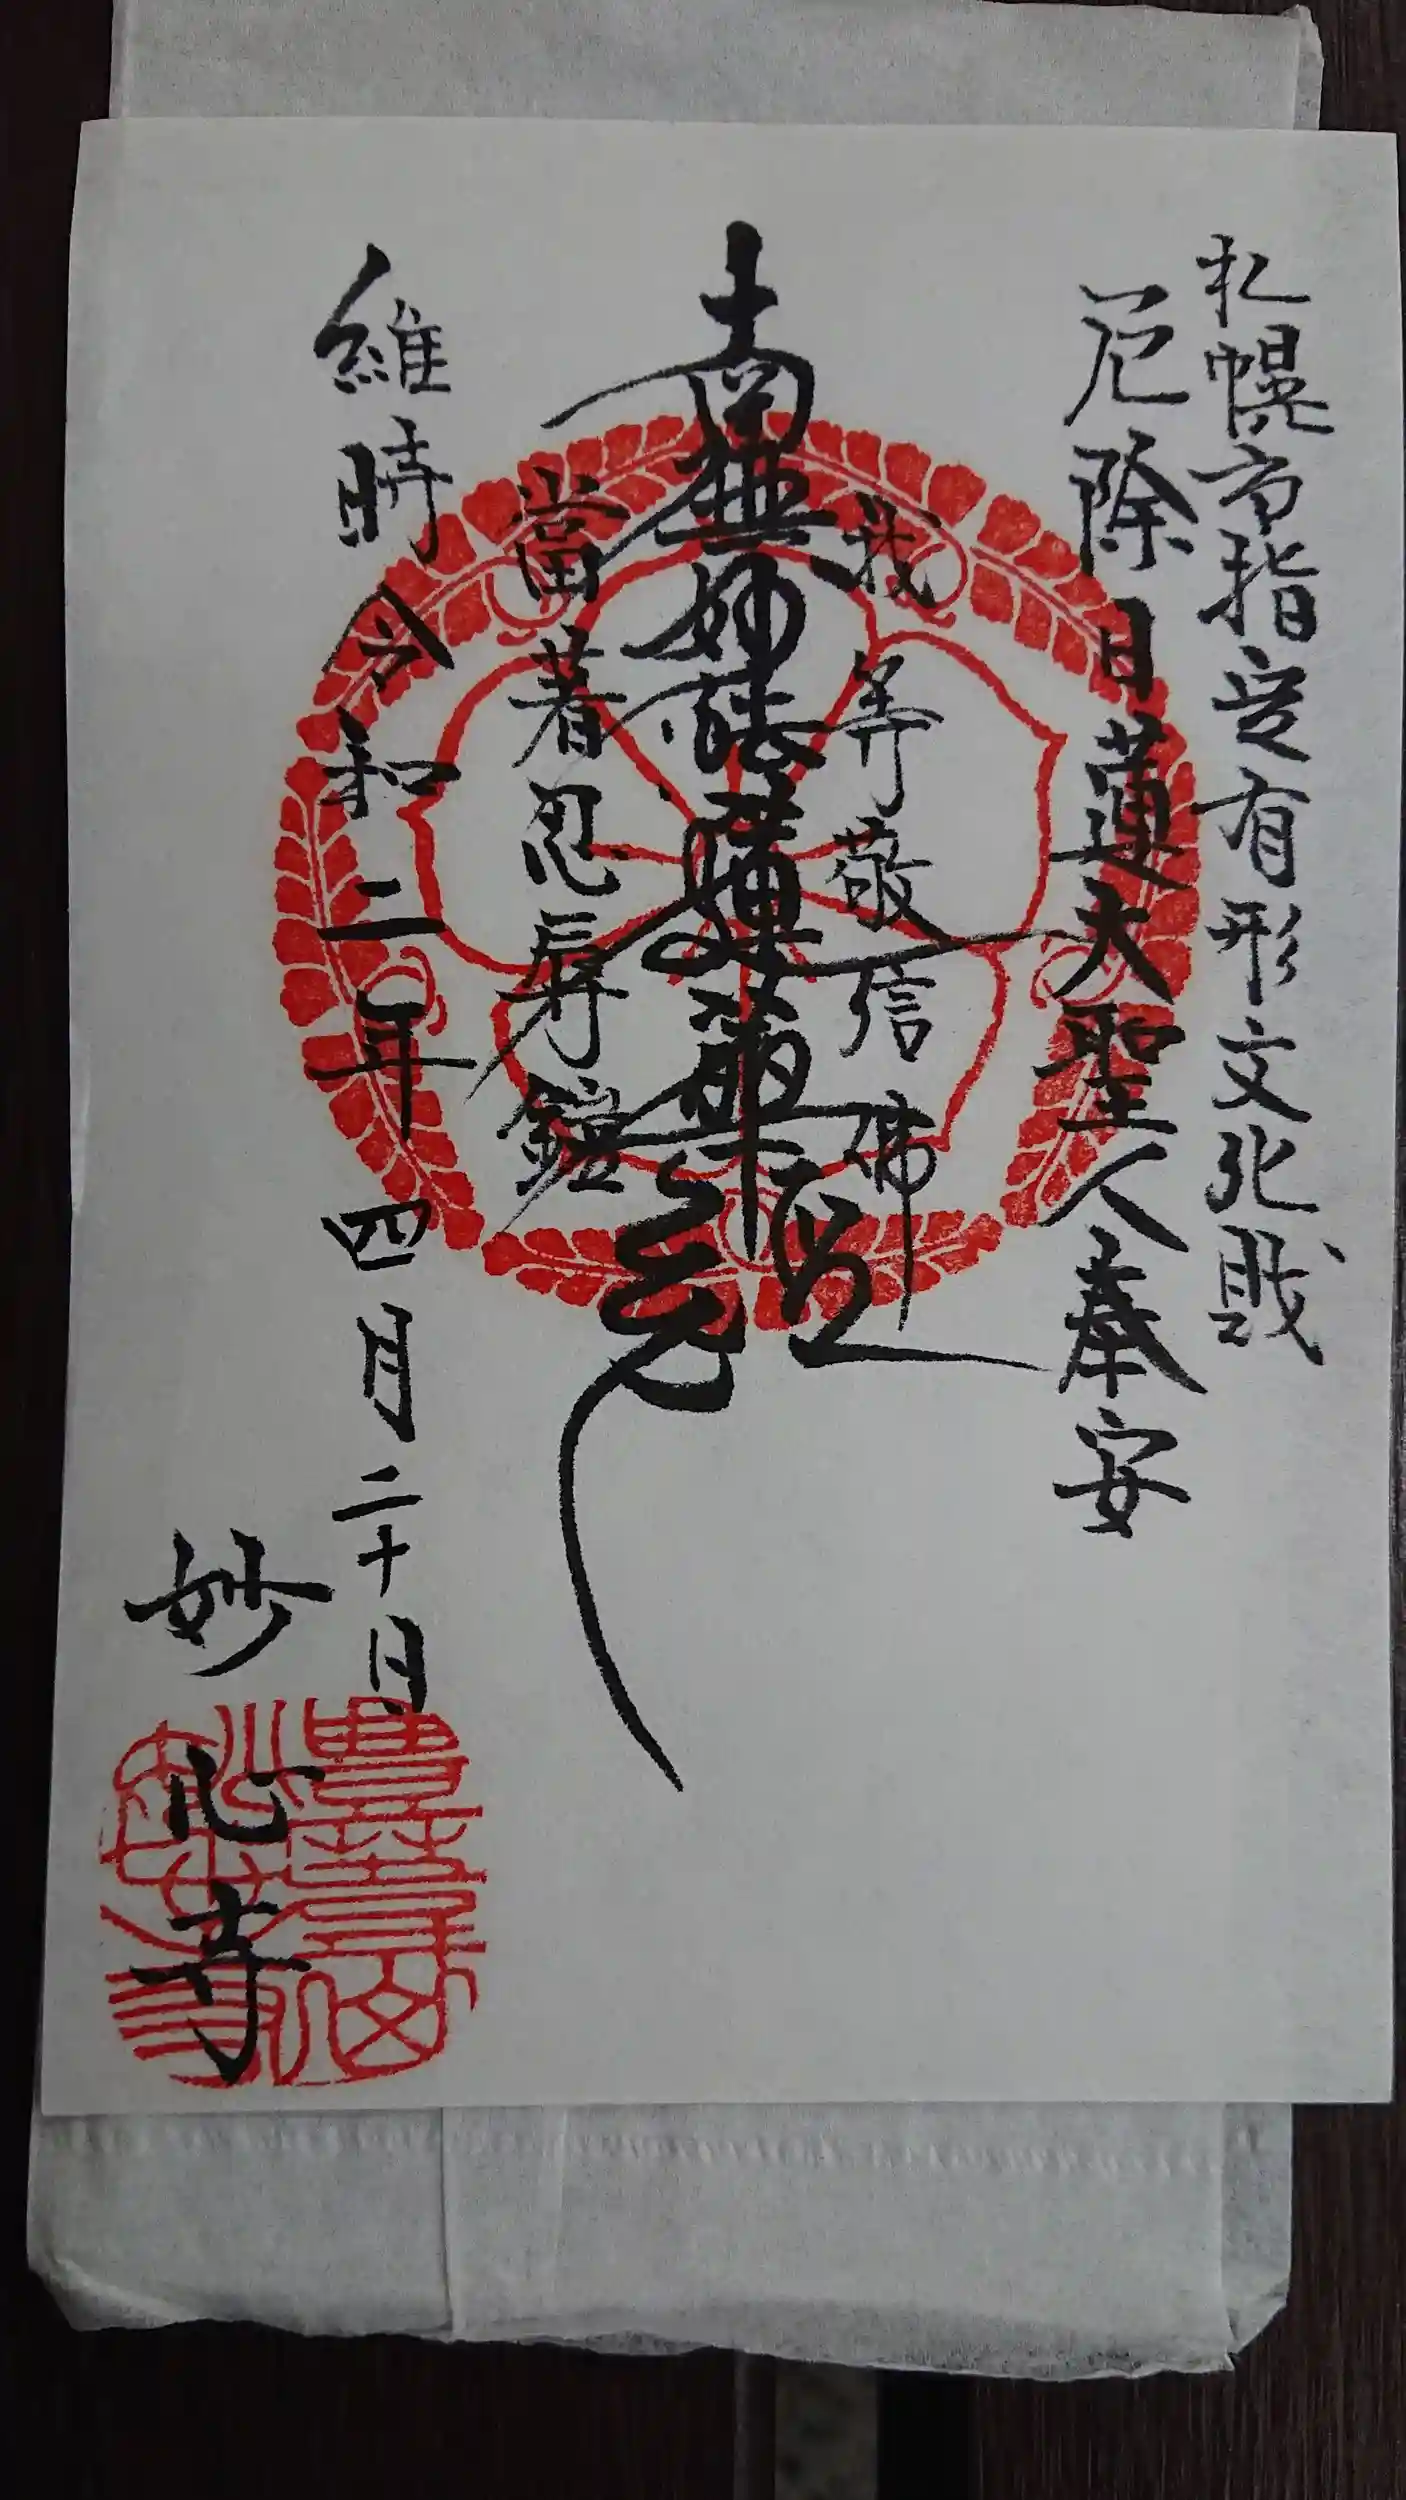 札幌市指定有形文化戝
厄除日蓮大聖人奉安
我等敬信佛
南無妙法蓮華經
當著忍辱鎧
維時令和二年四月二十日
妙心寺